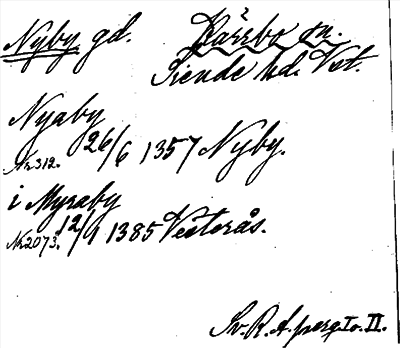 Nyby gd. Kärrbo sn.
Siende hd. Vst.
Nyaby
Nr 312. 26/6 1357 Nyby.
i Myraby
Nr 2073. 12/9 1385 Vesterås.
Sv. R. A. perg. I o. II.